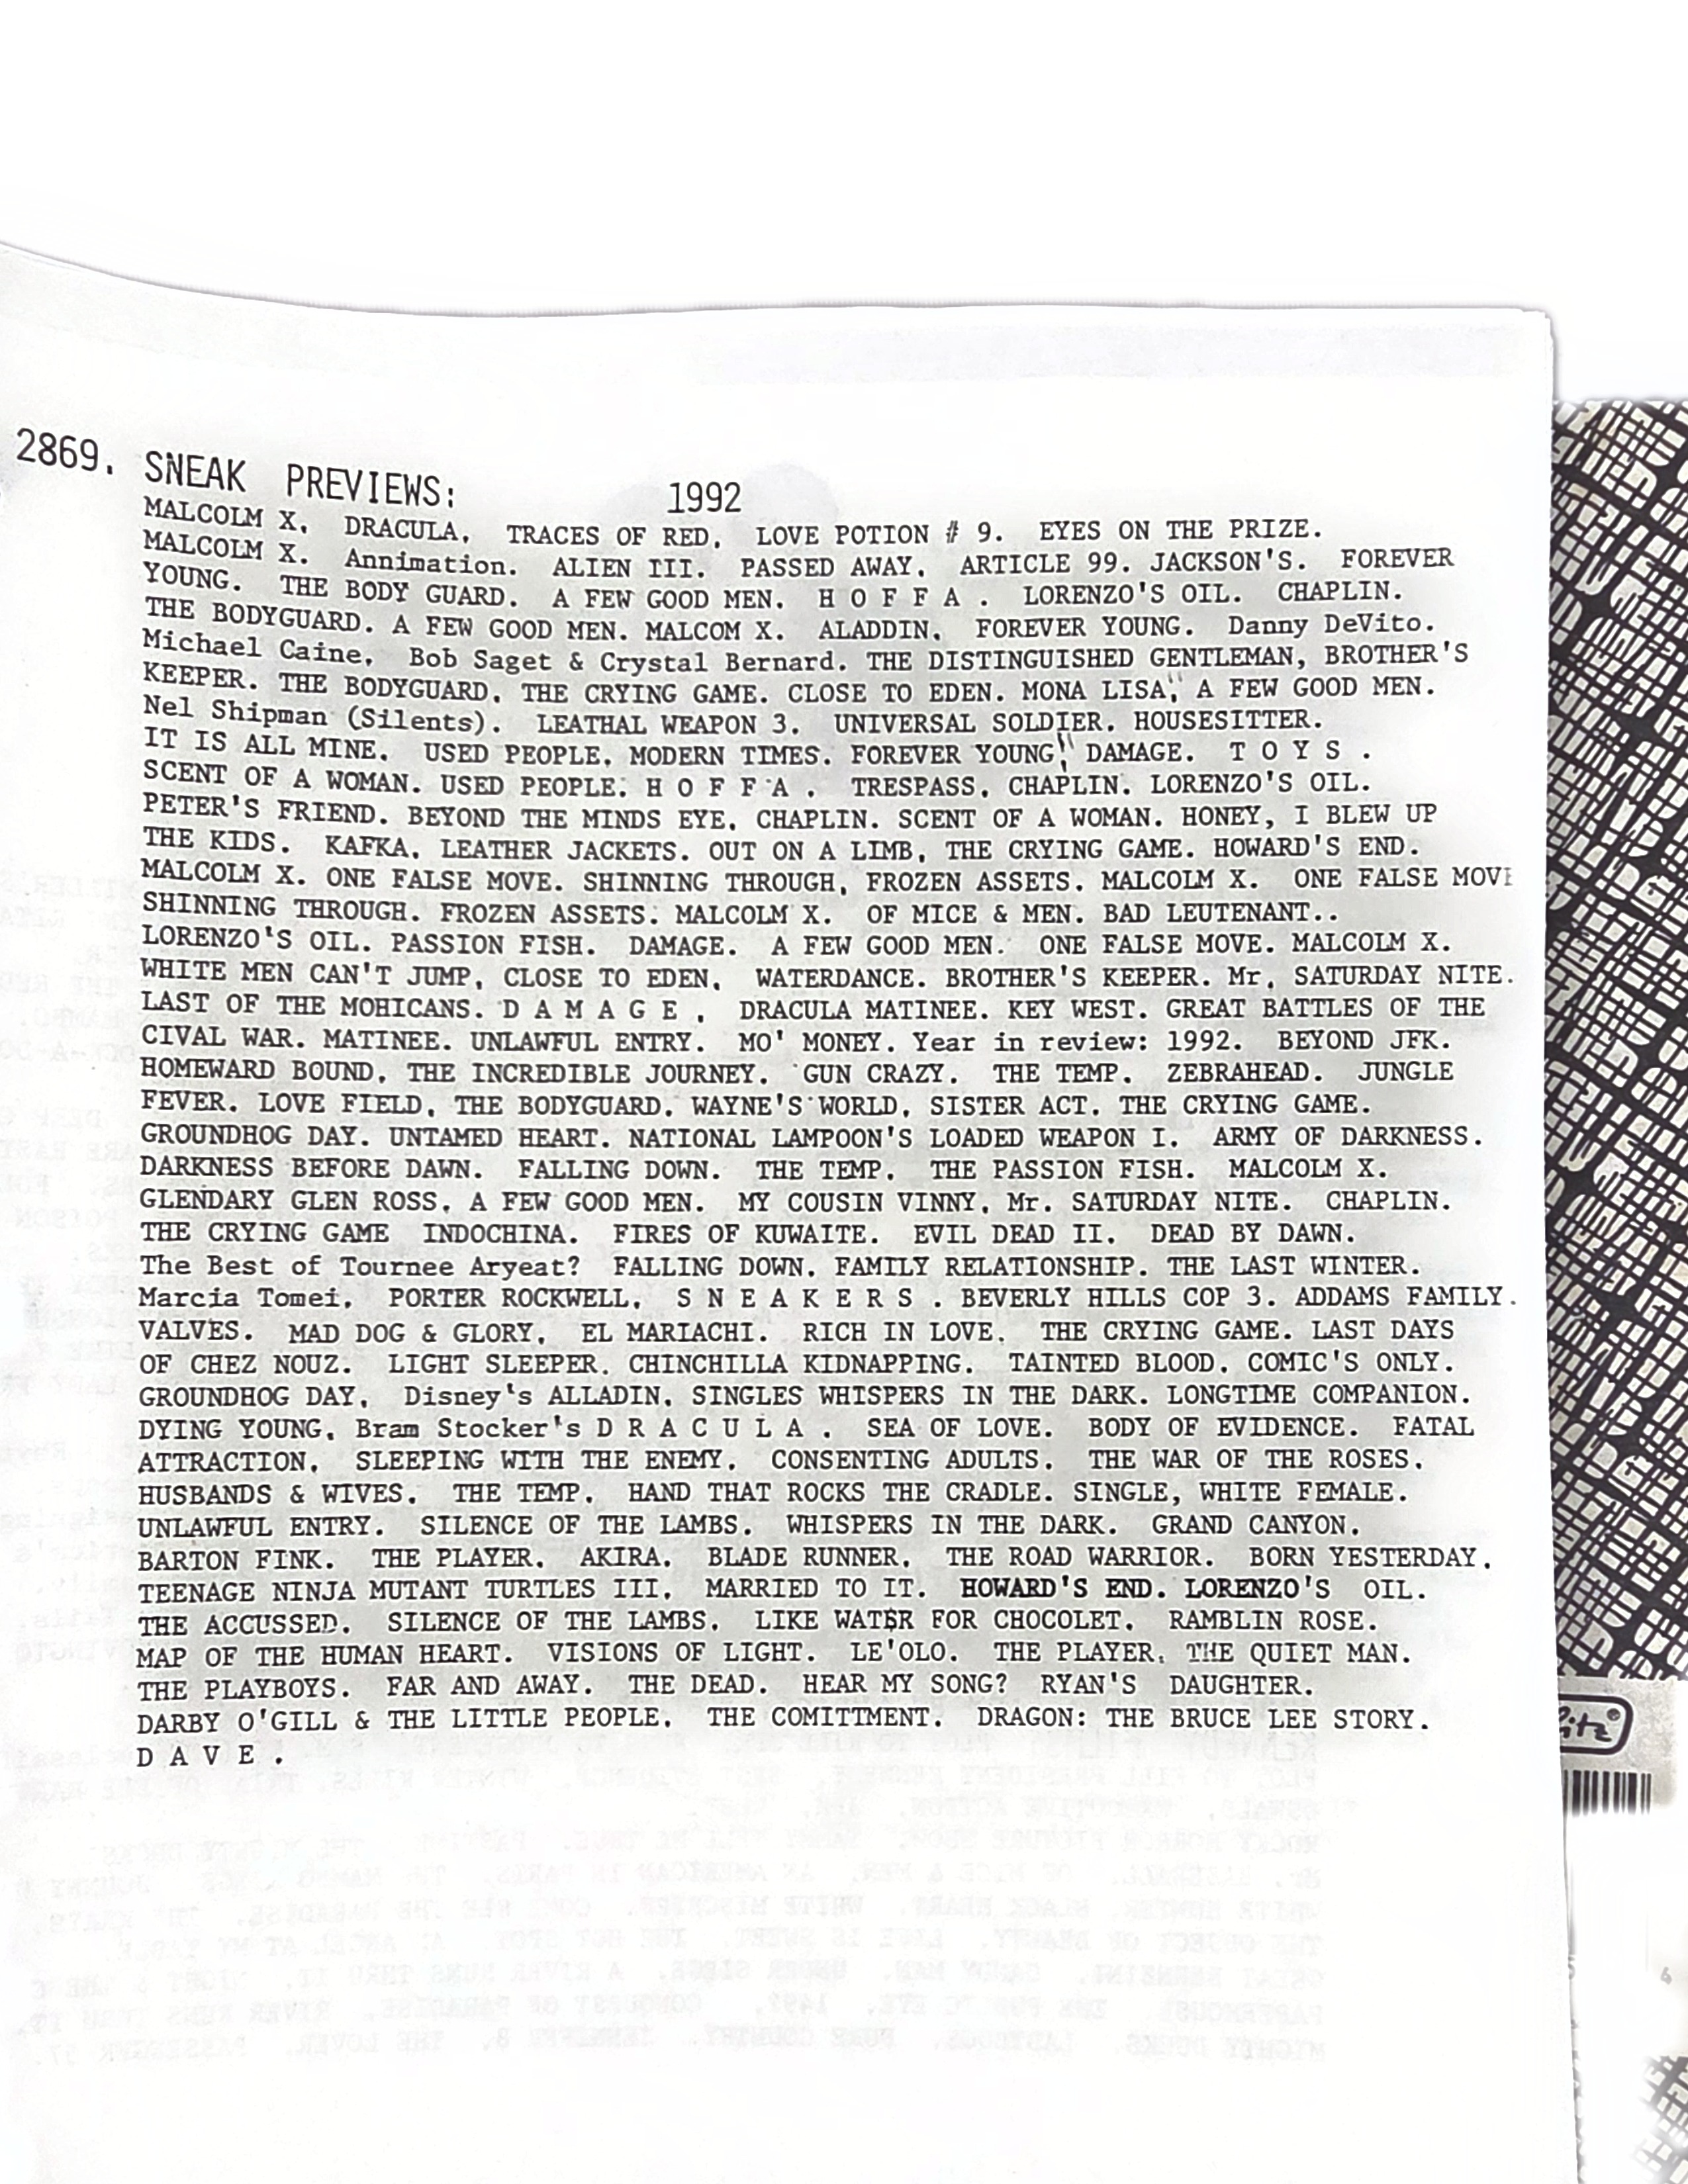 2869. SNEAK PREVIEWS: 1992
MALCOLM X. DRACULA. TRACES OF RED. LOVE POTION # 9. EYES ON THE PRIZE.
MALCOLM X. Annimation. ALIEN III. PASSED AWAY. ARTICLE 99. JACKSON'S. FOREVER
YOUNG. THE BODY GUARD. A FEW GOOD MEN. H O F F A . LORENZO'S OIL. CHAPLIN.
THE BODYGUARD. A FEW GOOD MEN. MALCOM X. ALADDIN. FOREVER YOUNG. Danny DeVito.
Michael Caine. Bob Saget & Crystal Bernard. THE DISTINGUISHED GENTLEMAN, BROTHER'S
KEEPER. THE BODYGUARD. THE CRYING GAME. CLOSE TO EDEN. MONA LISA," A FEW GOOD MEN.
Nel Shipman (Silents). LEATHAL WEAPON 3. UNIVERSAL SOLDIER. HOUSESITTER.
IT IS ALL MINE. USED PEOPLE. MODERN TIMES. FOREVER YOUNG," DAMAGE. T O Y S .
SCENT OF A WOMAN. USED PEOPLE. H O F F A . TRESPASS. CHAPLIN. LORENZO'S OIL.
PETER'S FRIEND. BEYOND THE MINDS EYE. CHAPLIN. SCENT OF A WOMAN. HONEY, I BLEW UP
THE KIDS. KAFKA. LEATHER JACKETS. OUT ON A LIMB. THE CRYING GAME. HOWARD'S END.
MALCOLM X. ONE FALSE MOVE. SHINNING THROUGH. FROZEN ASSETS. MALCOLM X. ONE FALSE MOVE
SHINNING THROUGH. FROZEN ASSETS. MALCOLM X. OF MICE & MEN. BAD LEUTENANT..
LORENZO'S OIL. PASSION FISH. DAMAGE. A FEW GOOD MEN. ONE FALSE MOVE. MALCOLM X.
WHITE MEN CAN'T JUMP. CLOSE TO EDEN. WATERDANCE. BROTHER'S KEEPER. Mr. SATURDAY NITE.
LAST OF THE MOHICANS. D A M A G E . DRACULA MATINEE. KEY WEST. GREAT BATTLES OF THE
CIVAL WAR. MATINEE. UNLAWFUL ENTRY. MO' MONEY. Year in review: 1992. BEYOND JFK.
HOMEWARD BOUND, THE INCREDIBLE JOURNEY. GUN CRAZY. THE TEMP. ZEBRAHEAD. JUNGLE
FEVER. LOVE FIELD. THE BODYGUARD. WAYNE'S WORLD. SISTER ACT. THE CRYING GAME.
GROUNDHOG DAY. UNTAMED HEART. NATIONAL LAMPOON'S LOADED WEAPON I. ARMY OF DARKNESS.
DARKNESS BEFORE DAWN. FALLING DOWN. THE TEMP. THE PASSION FISH. MALCOLM X.
GLENDARY GLEN ROSS. A FEW GOOD MEN. MY COUSIN VINNY. Mr. SATURDAY NITE. CHAPLIN.
THE CRYING GAME INDOCHINA. FIRES OF KUWAITE. EVIL DEAD II. DEAD BY DAWN.
The Best of Tournee Aryeat? FALLING DOWN. FAMILY RELATIONSHIP. THE LAST WINTER.
Marcia Tomei. PORTER ROCKWELL. S N E A K E R S . BEVERLY HILLS COP 3. ADDAMS FAMILY.
VALVES. MAD DOG & GLORY. EL MARIACHI. RICH IN LOVE. THE CRYING GAME. LAST DAYS
OF CHEZ NOUZ. LIGHT SLEEPER. CHINCHILLA KIDNAPPING. TAINTED BLOOD. COMIC'S ONLY.
GROUNDHOG DAY. Disney's ALLADIN. SINGLES WHISPERS IN THE DARK. LONGTIME COMPANION.
DYING YOUNG. Bram Stocker's D R A C U L A . SEA OF LOVE. BODY OF EVIDENCE. FATAL
ATTRACTION. SLEEPING WITH THE ENEMY. CONSENTING ADULTS. THE WAR OF THE ROSES.
HUSBANDS & WIVES. THE TEMP. HAND THAT ROCKS THE CRADLE. SINGLE, WHITE FEMALE.
UNLAWFUL ENTRY. SILENCE OF THE LAMBS. WHISPERS IN THE DARK. GRAND CANYON.
BARTON FINK. THE PLAYER. AKIRA. BLADE RUNNER. THE ROAD WARRIOR. BORN YESTERDAY.
TEENAGE NINJA MUTANT TURTLES III. MARRIED TO IT. HOWARD'S END. LORENZO'S OIL.
THE ACCUSSED. SILENCE OF THE LAMBS. LIKE WAT$R FOR CHOCOLET. RAMBLIN ROSE.
MAP OF THE HUMAN HEART. VISIONS OF LIGHT. LE'OLO. THE PLAYER. THE QUIET MAN.
THE PLAYBOYS. FAR AND AWAY. THE DEAD. HEAR MY SONG? RYAN'S DAUGHTER.
DARBY O'GILL & THE LITTLE PEOPLE. THE COMITTMENT. DRAGON: THE BRUCE LEE STORY.
D A V E .